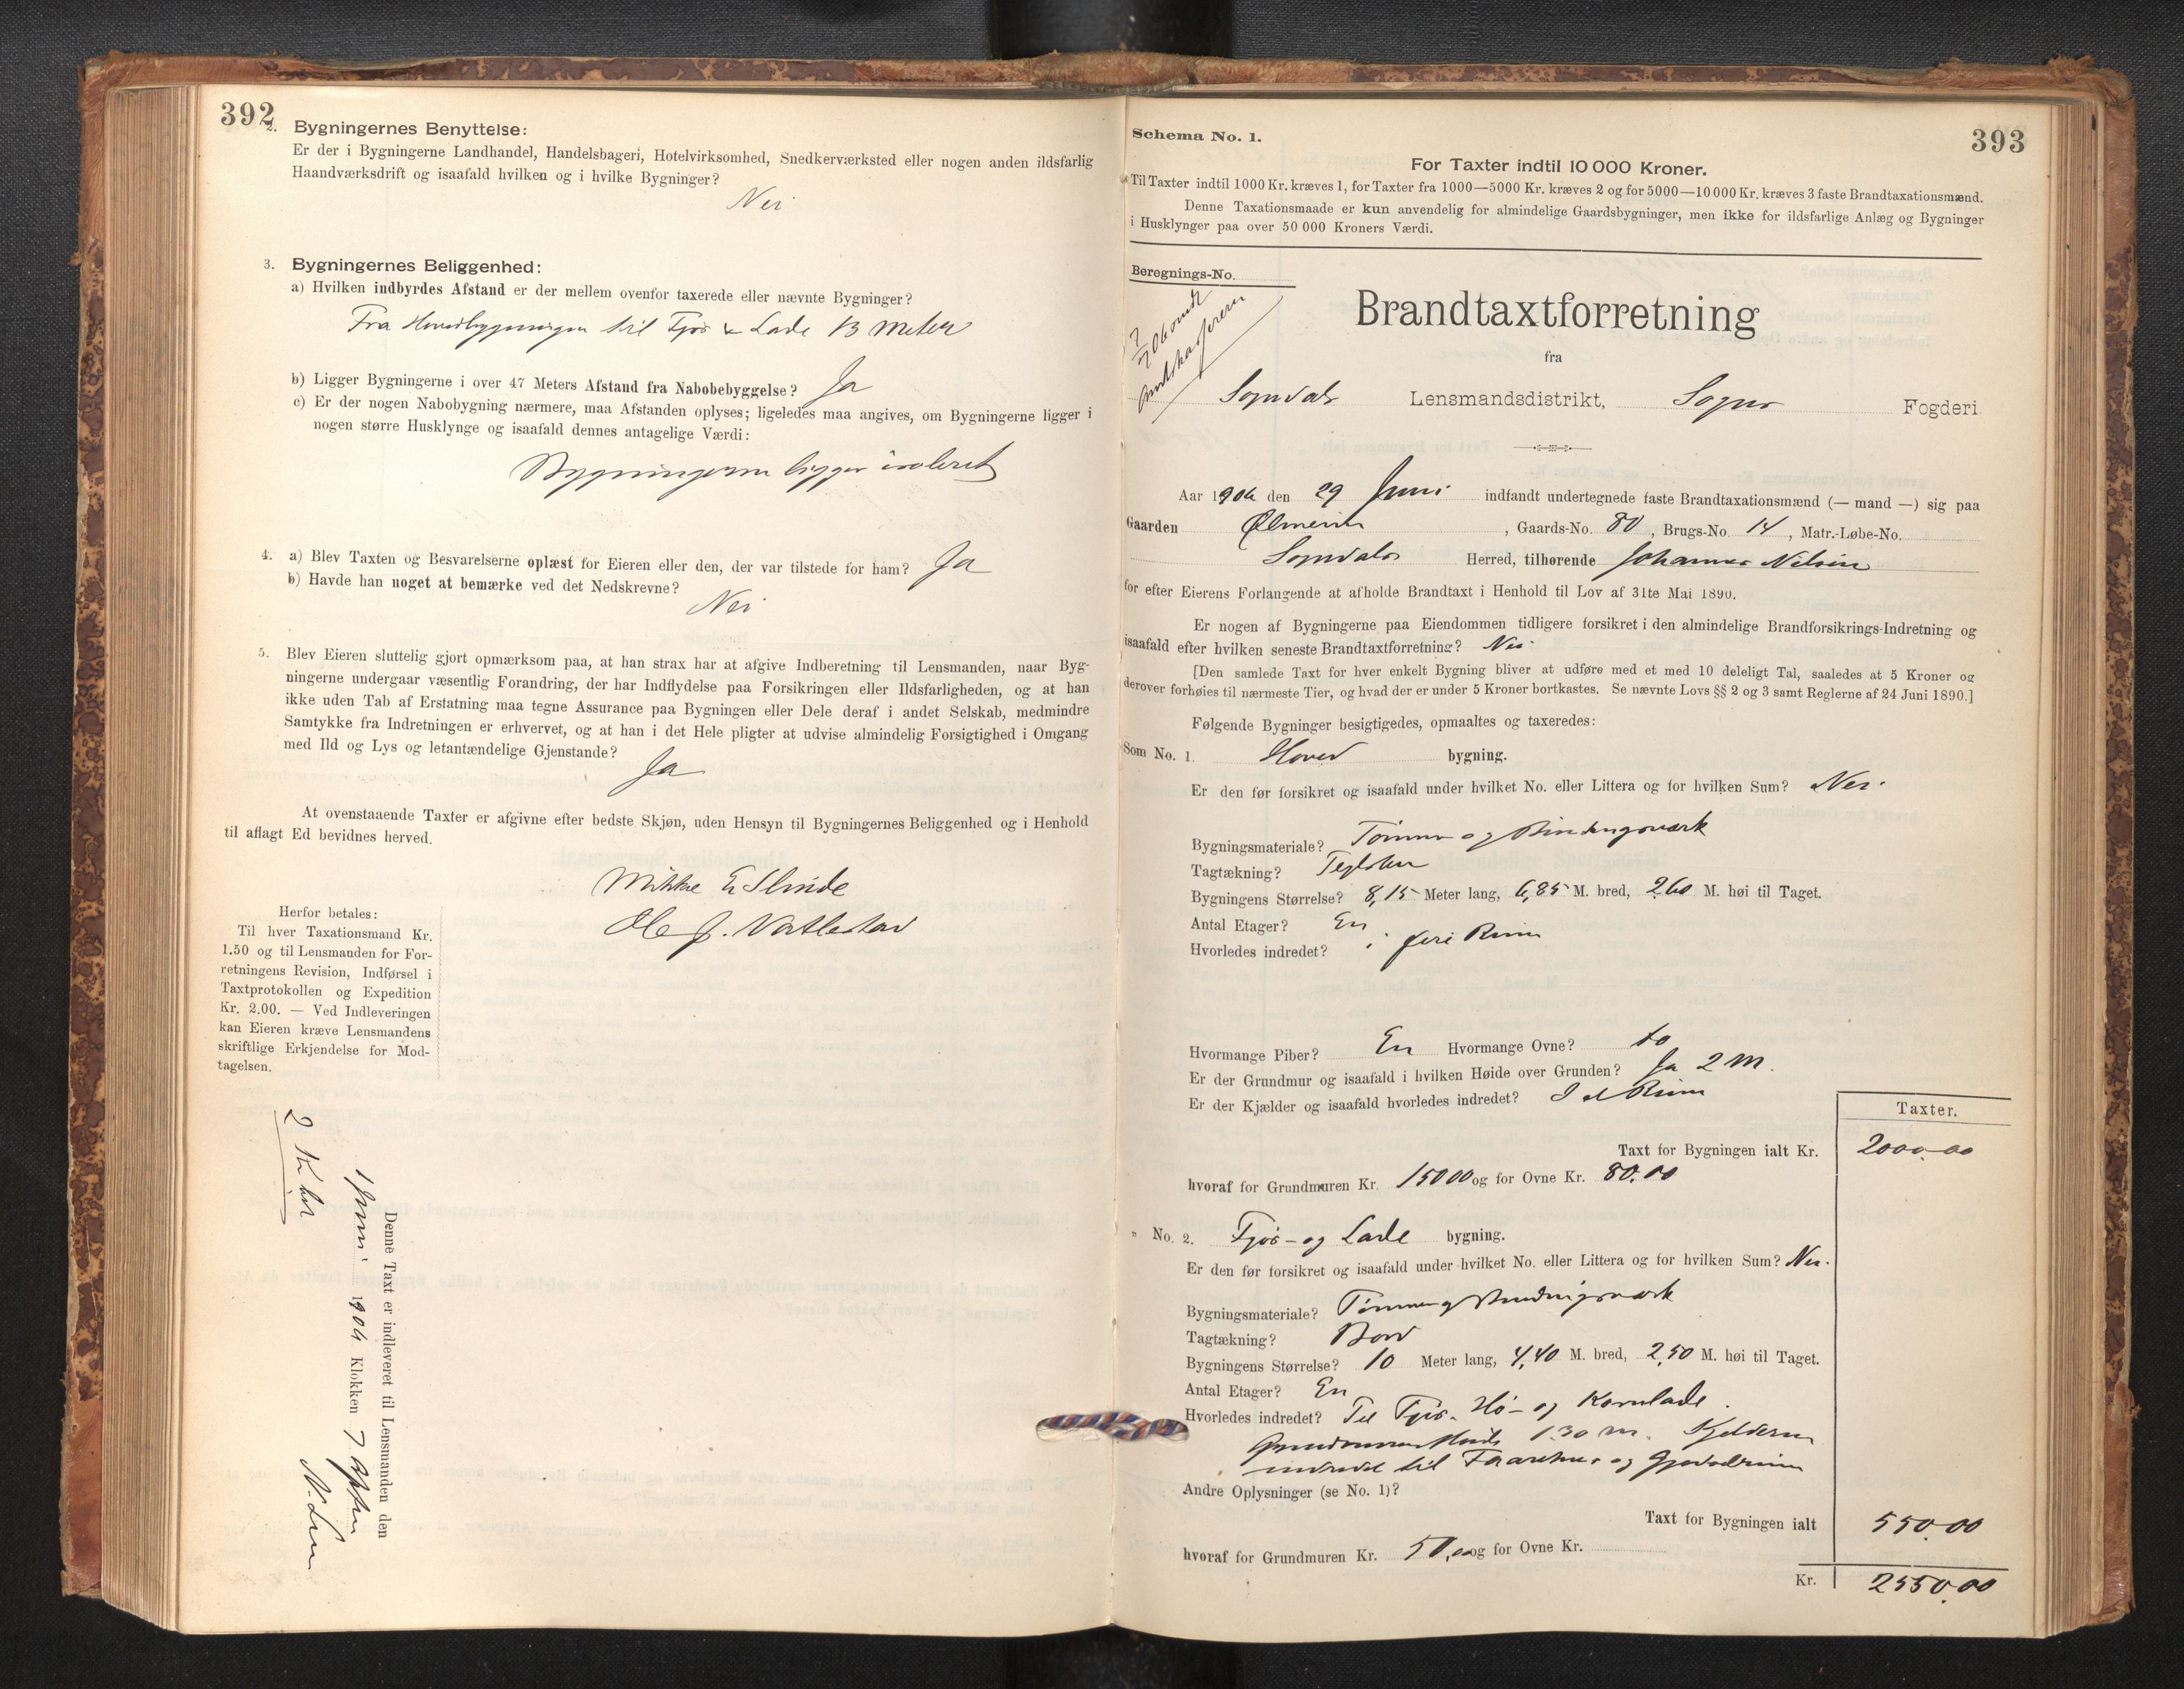 392
2. Bygningernes Benyttelse:
Er der i Bygningerne Landhandel, Handelsbageri, Hotelvirksomhed, Snedkerværksted eller nogen anden ildsfarlig
Haandværksdrift og isaafald hvilken og i hvilke Bygninger?
Nei
3. Bygningernes Beliggenhed:
a) Hvilken indbyrdes Afstand er der mellem ovenfor taxerede eller nævnte Bygninger?
Fra Hovedbygningen til Fjøs & Lade 13 meter
b) Ligger Bygningerne i over 47 Meters Afstand fra Nabobebyggelse? Ja
c) Er der nogen Nabobygning nærmere, maa Afstanden oplyses; ligeledes maa angives, om Bygningerne ligger i
nogen større Husklynge og isaafald dennes antagelige Værdi:
Bygningerne ligger isoleret
4. a) Blev Taxten og Besvarelserne oplæst for Eieren eller den, der var tilstede for ham? Ja
b) Havde han noget at bemærke ved det Nedskrevne?
Nei
5. Blev Eieren sluttelig gjort opmærksom paa, at han strax har at afgive Indberetning til Lensmanden, naar Byg-
ningerne undergaar væsentlig Forandring, der har Indflydelse paa Forsikringen eller Ildsfarligheden, og at han
ikke uden Tab af Erstatning maa tegne Assurance paa Bygningen eller Dele deraf i andet Selskab, medmindre
Samtykke fra Indretningen er erhvervet, og at han i det Hele pligter at udvise almindelig Forsigtighed i Omgang
med Ild og Lys og letantændelige Gjenstande?
Ja
At ovenstaaende Taxter er afgivne efter bedste Skjøn, uden Hensyn til Bygningernes Beliggenhed og i Henhold
til aflagt Ed bevidnes herved.
E Slinde
Ole J. Vatlestad
Herfor betales:
Til hver Taxationsmand Kr.
1.50 og til Lensmanden for For-
retningens Revision, Indførsel i
Taxtprotokollen og Expedition
Kr. 2.00. — Ved Indleveringen
kan Eieren kræve Lensmandens
skriftlige Erkjendelse for Mod-
tagelsen.
Denne Taxt er indleveret til Lensmanden den
1904 Klokken 7
393
Schema No. 1.
For Taxter indtil 10 000 Kroner.
Til Taxter indtil 1000 Kr. kræves 1, for Taxter fra 1000—5000 Kr. kræves 2 og for 5000—10 000 Kr. kræves 3 faste Brandtaxationsmænd.
Denne Taxationsmaade er kun anvendelig for almindelige Gaardsbygninger, men ikke for ildsfarlige Anlæg og Bygninger
i Husklynger paa over 50 000 Kroners Værdi.
Beregnings-No.
Brandtaxtforretning
fra
Sogndals Lensmandsdistrikt, Sogns Fogderi
Aar 1904 den 29 Juni indfandt undertegnede faste Brandtaxationsmænd (— mand —) sig paa
Gaarden Ølmeim, Gaards-No. 80, Brugs-No. 14, Matr.-Løbe-No.
Sogndals Herred, tilhørende Johannes Nilsen
for efter Eierens Forlangende at afholde Brandtaxt i Henhold til Lov af 31te Mai 1890.
Er nogen af Bygningerne paa Eiendommen tidligere forsikret i den almindelige Brandforsikrings-Indretning og
isaafald efter hvilken seneste Brandtaxtforretning? Nei
[Den samlede Taxt for hver enkelt Bygning bliver at udføre med et med 10 deleligt Tal, saaledes at 5 Kroner og
derover forhøies til nærmeste Tier, og hvad der er under 5 Kroner bortkastes. Se nævnte Lovs §§ 2 og 3 samt Reglerne af 24 Juni 1890.]
Følgende Bygninger besigtigedes, opmaaltes og taxeredes:
Som No. 1. Hoved bygning.
Er den før forsikret og isaafald under hvilket No. eller Littera og for hvilken Sum? Nei.
Bygningsmateriale? Tømmer og Bindingsværk
Tagtækning? Teglsten
Bygningens Størrelse? 8,15 Meter lang, 6,85 M. bred, 2,60 M. høi til Taget.
Antal Etager? En
Hvorledes indredet? i fire Rum
Hvormange Piber? En Hvormange Ovne? to
Er der Grundmur og isaafald i hvilken Høide over Grunden? Ja 2 M.
Er der Kjælder og isaafald hvorledes indredet? I et Rum
Taxter.
Taxt for Bygningen ialt Kr. 2000.00
hvoraf for Grundmuren Kr. 150 00 og for Ovne Kr. 80.00
" No. 2. Fjøs- og Lade bygning.
Er den før forsikret og isaafald under hvilket No. eller Littera og for hvilken Sum? Nei.
Bygningsmateriale? Tømmer og Bindingsværk
Tagtækning? Bord
Bygningens Størrelse? 10 Meter lang, 4,40 M. bred, 2,50 M. høi til Taget.
Antal Etager? En
Hvorledes indredet? Til Fjøs- Hø- og Kornlade.
Grundmurens Høide 1.30 m. Kjelderen
indredet til Faarehus og Gjødselrum
Andre Oplysninger (se No. 1)?
Taxt for Bygningen ialt 550.00
hvoraf for Grundmuren Kr. 50,00 og for Ovne Kr.
Kr. 2550.00